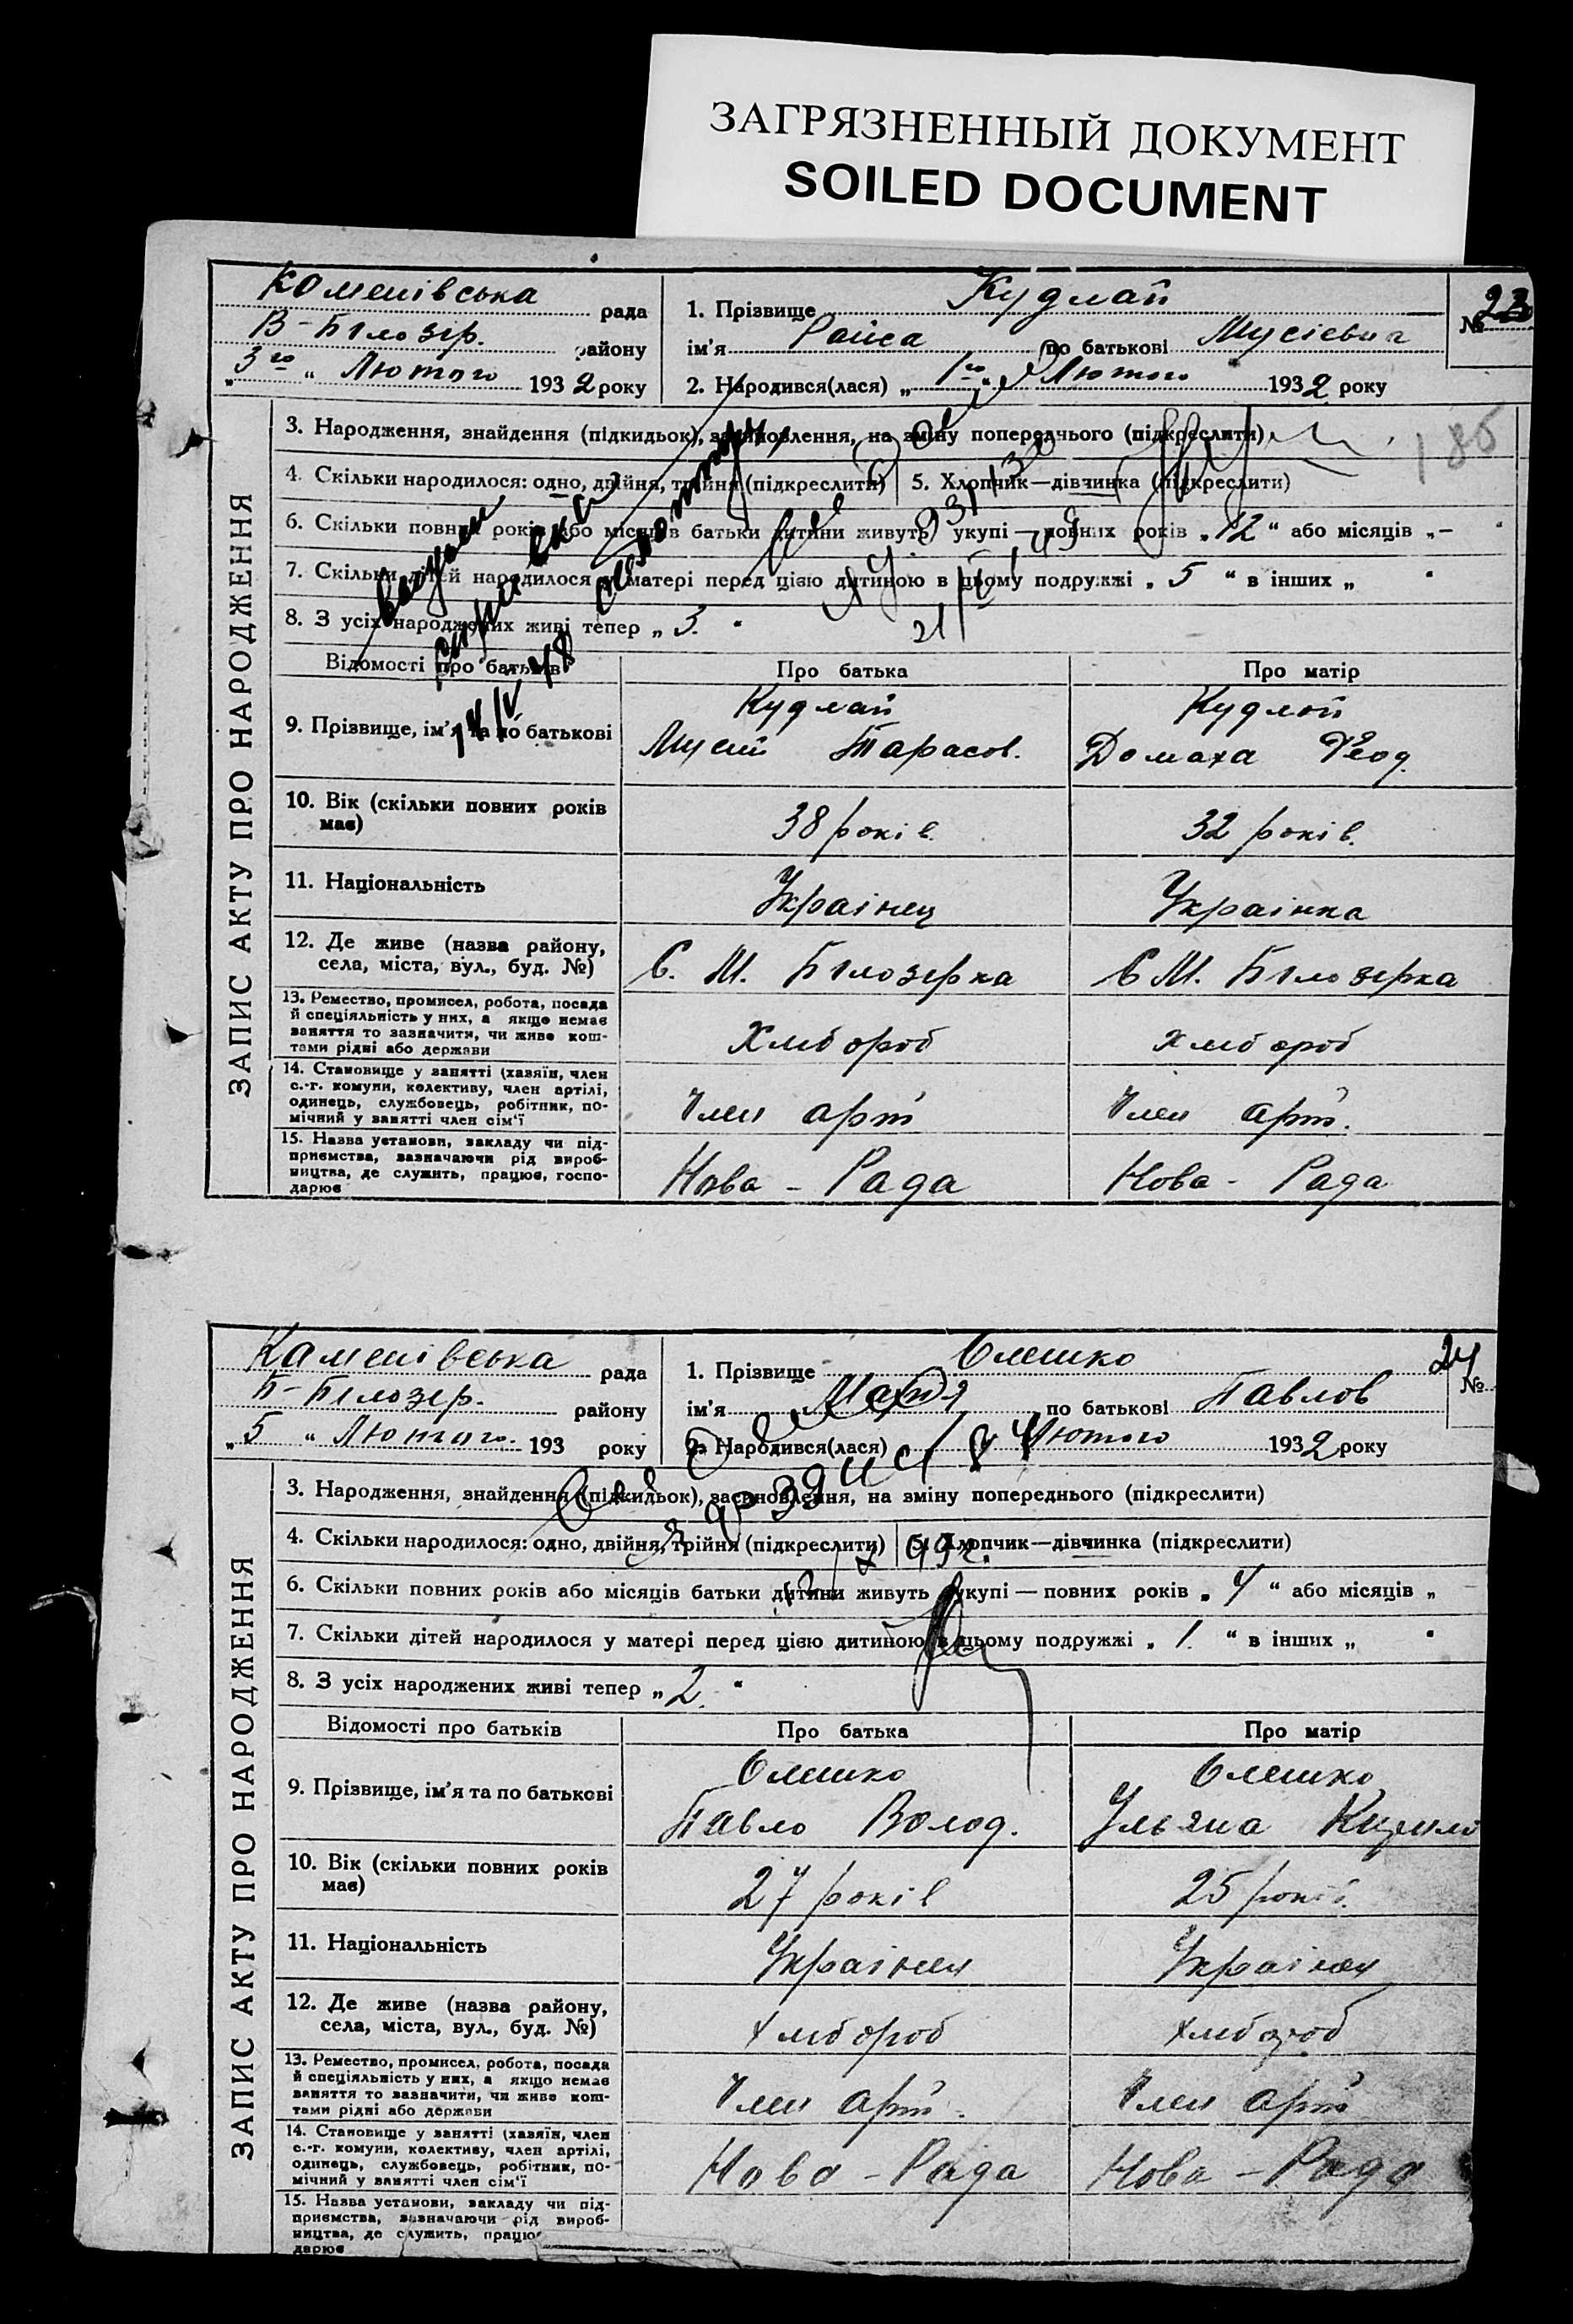 ЗАГРЯЗНЕННЫЙ ДОКУМЕНТ
SOILED DOCUMENT
Коменівська рада
В-Білозір. району
„3го“ Лютого 1932 року
1. Прізвище Кудлай
ім'я Раіса по батькові Мусієвна
2. Народився(лася) „1го“ Лютого 1932 року
№ 23
185
ЗАПИС АКТУ ПРО НАРОДЖЕННЯ
3. Народження, знайдення (підкидьок), засиновлення, на зміну попереднього (підкреслити)
4. Скільки народилося: одно, двійня, трійня (підкреслити) 5. Хлопчик—дівчинка (підкреслити)
6. Скільки повних років або місяців батьки дитини живуть укупі — повних років „12“ або місяців „–
7. Скільки дітей народилося у матері перед цією дитиною в цьому подружжі „5“ в інших „ “
8. З усіх народжених живі тепер „3.“
Відомості про батьків Про батька Про матір
9. Прізвище, ім'я та по батькові
Кудлай Мусій Тарасов.
Кудлай Домаха Феод.
10. Вік (скільки повних років має)
38 років.
32 років.
11. Національність
Українец
Українка
12. Де живе (назва району, села, міста, вул., буд. №)
С. М. Білозерка
С М. Білозерка
13. Ремество, промисел, робота, посада й спеціяльність у них, а якщо немає заняття то зазначити, чи живе коштами рідні або держави
Хлібороб
Хлібороб
14. Становище у занятті (хазяїн, член с.-г. комуни, колективу, член артілі, одинець, службовець, робітник, помічний у занятті член сім'ї
Член арт
Член арт.
15. Назва установи, закладу чи підприємства, зазначаючи рід виробництва, де служить, працює, господарює
Нова - Рада
Нова - Рада
Каменівська рада
Б-Білозер. району
„5“ Лютого. 193 року
1. Прізвище Олешко
ім'я Марія по батькові Павлов
2. Народився(лася) Лютого 1932 року
№ 24
ЗАПИС АКТУ ПРО НАРОДЖЕННЯ
3. Народження, знайдення (підкидьок), засиновлення, на зміну попереднього (підкреслити)
4. Скільки народилося: одно, двійня, трійня (підкреслити) 5. Хлопчик—дівчинка (підкреслити)
6. Скільки повних років або місяців батьки дитини живуть укупі — повних років „4“ або місяців „
7. Скільки дітей народилося у матері перед цією дитиною в цьому подружжі „1.“ в інших „ “
8. З усіх народжених живі тепер „2.“
Відомості про батьків Про батька Про матір
9. Прізвище, ім'я та по батькові
Олешко Павло Волод.
Олешко Ульяна
10. Вік (скільки повних років має)
27 років
25 років.
11. Національність
Українец
12. Де живе (назва району, села, міста, вул., буд. №)
Хлібороб
Хлібороб
13. Ремество, промисел, робота, посада й спеціяльність у них, а якщо немає заняття то зазначити, чи живе коштами рідні або держави
Член арт.
Член арт
14. Становище у занятті (хазяїн, член с.-г. комуни, колективу, член артілі, одинець, службовець, робітник, помічний у занятті член сім'ї
Нова - Рада
Нова - Рада
15. Назва установи, закладу чи підприємства, зазначаючи рід виробництва, де служить, працює
дарює